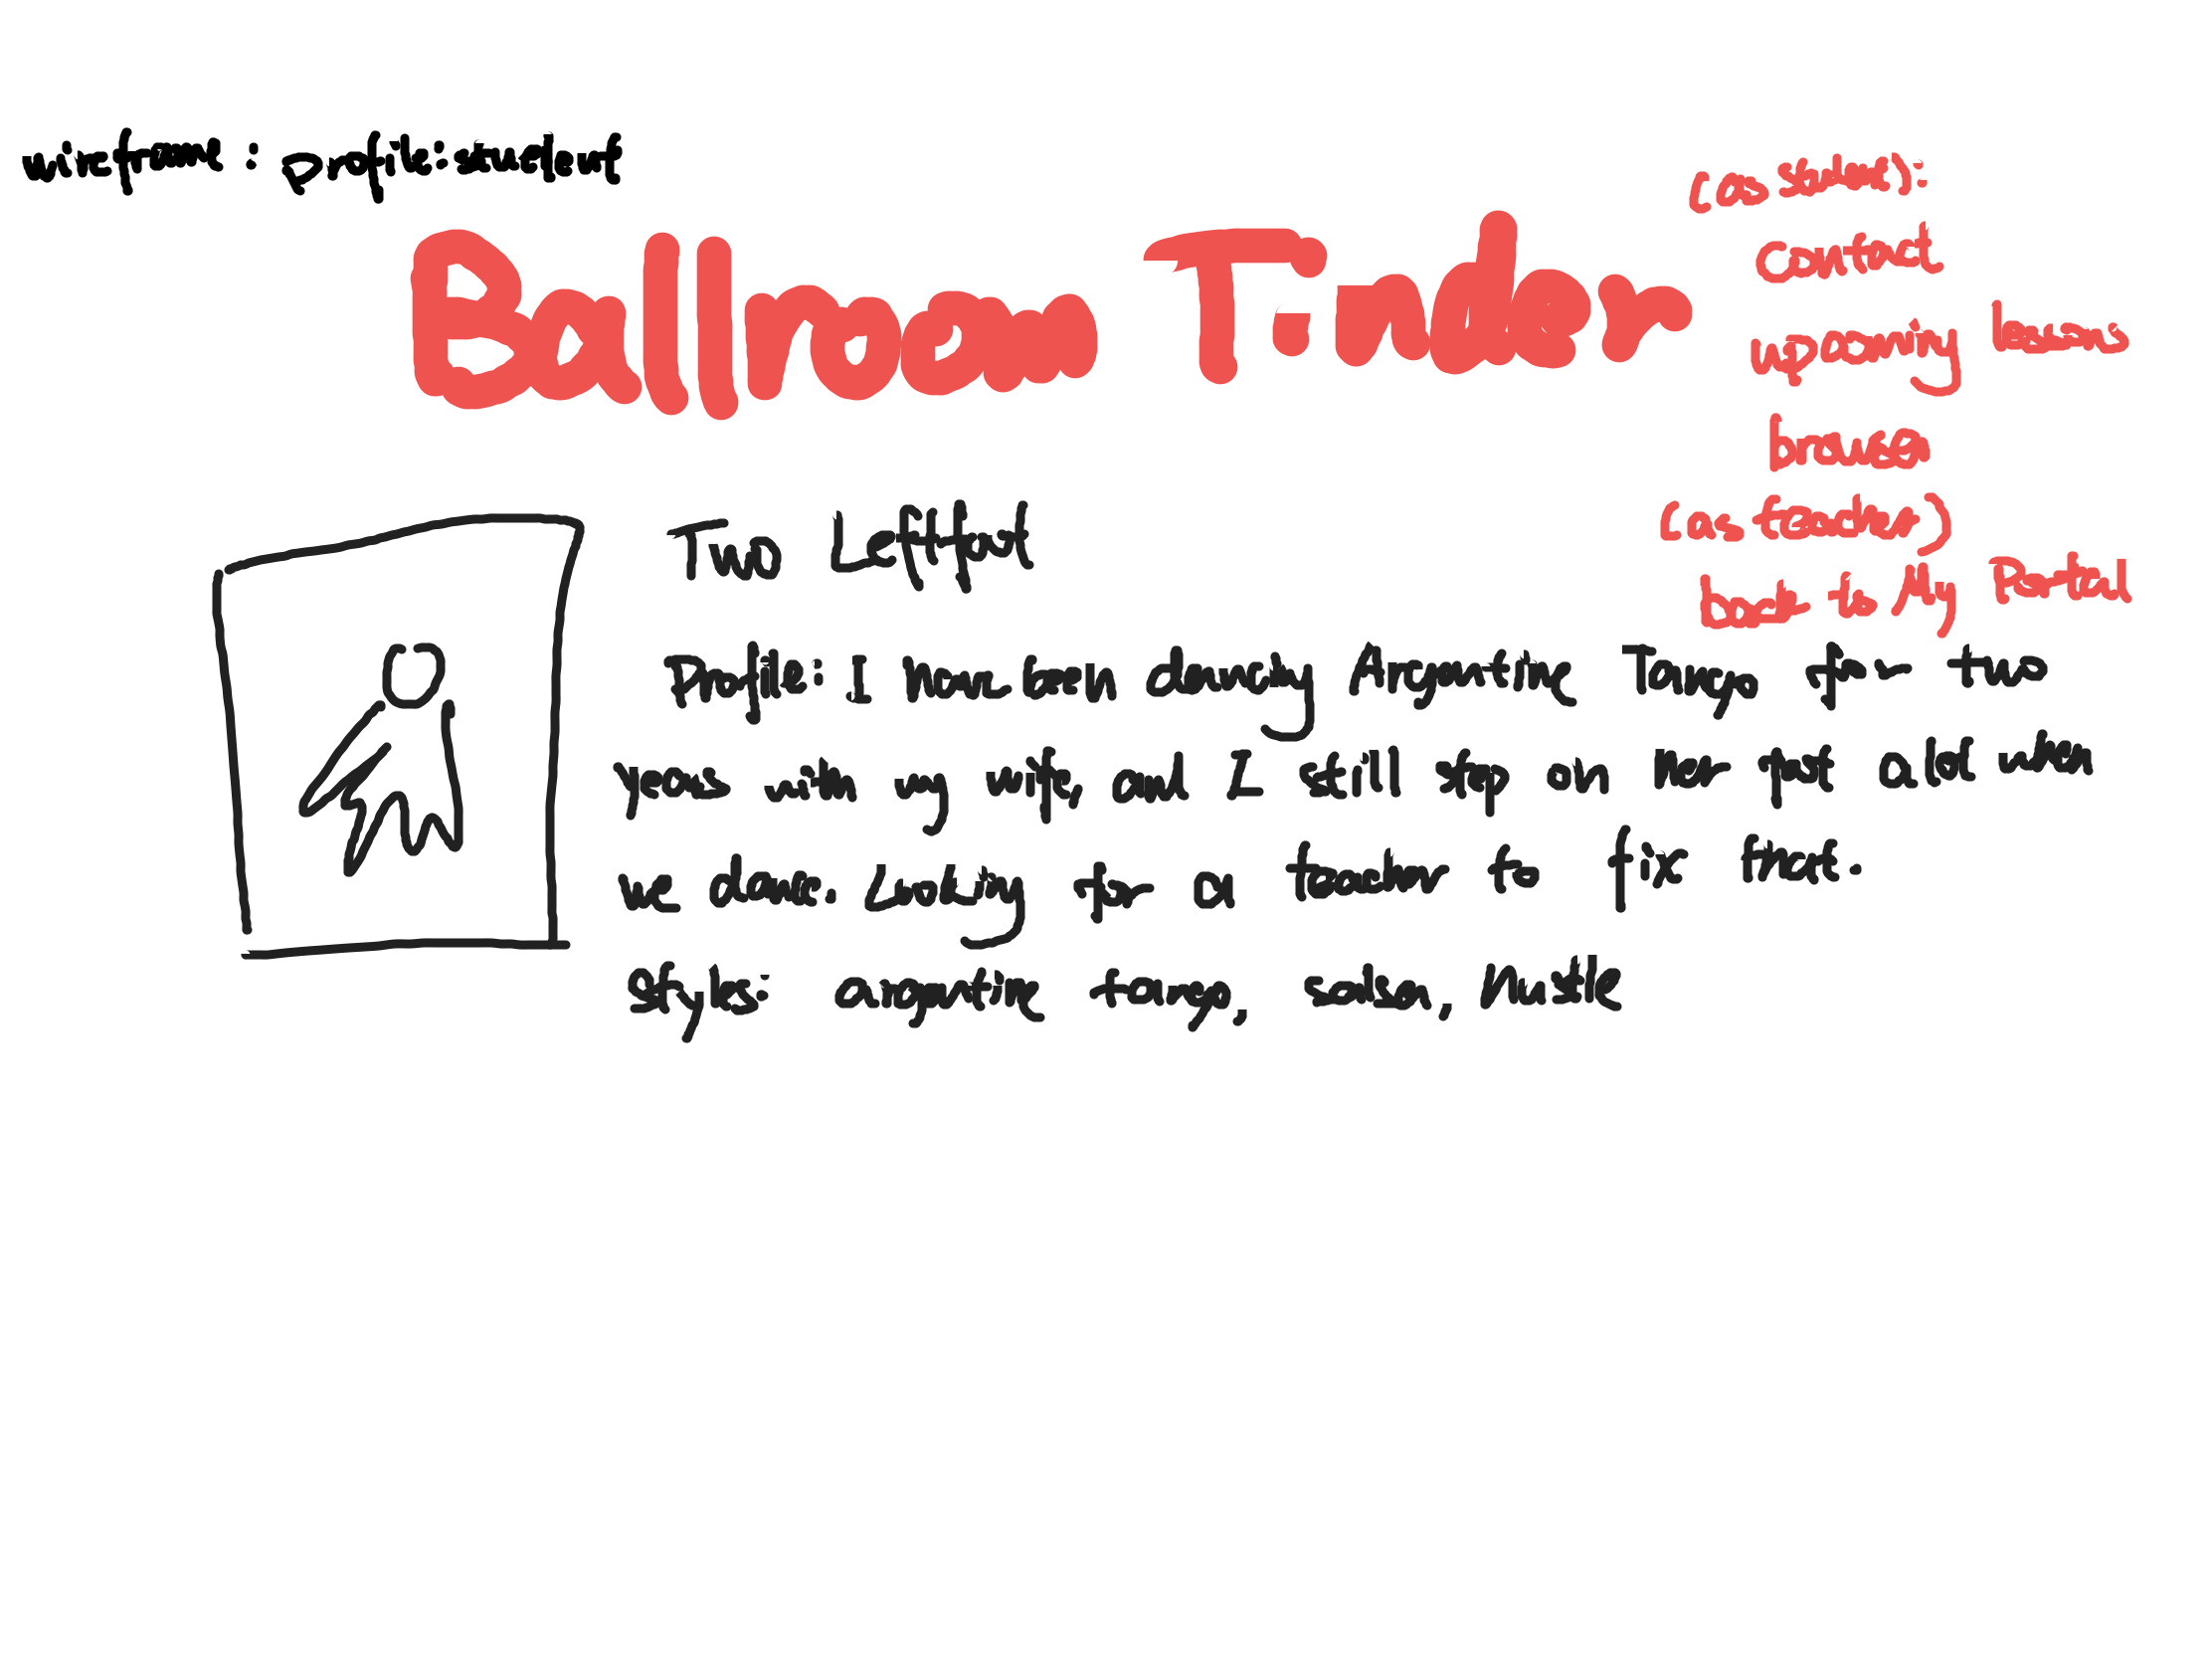 wireframe: profile:student
Ballroom Tinder
(as student):
contact
upcoming lessons
browse
(as teacher)
back to My Portal
Two Leftfoot
Profile: I have been dancing Argentine Tango for two
years with my wife, and I still step on her foot a lot when
we dance. Looking for a teacher to fix that.
Styles: argentine tango, salsa, hustle